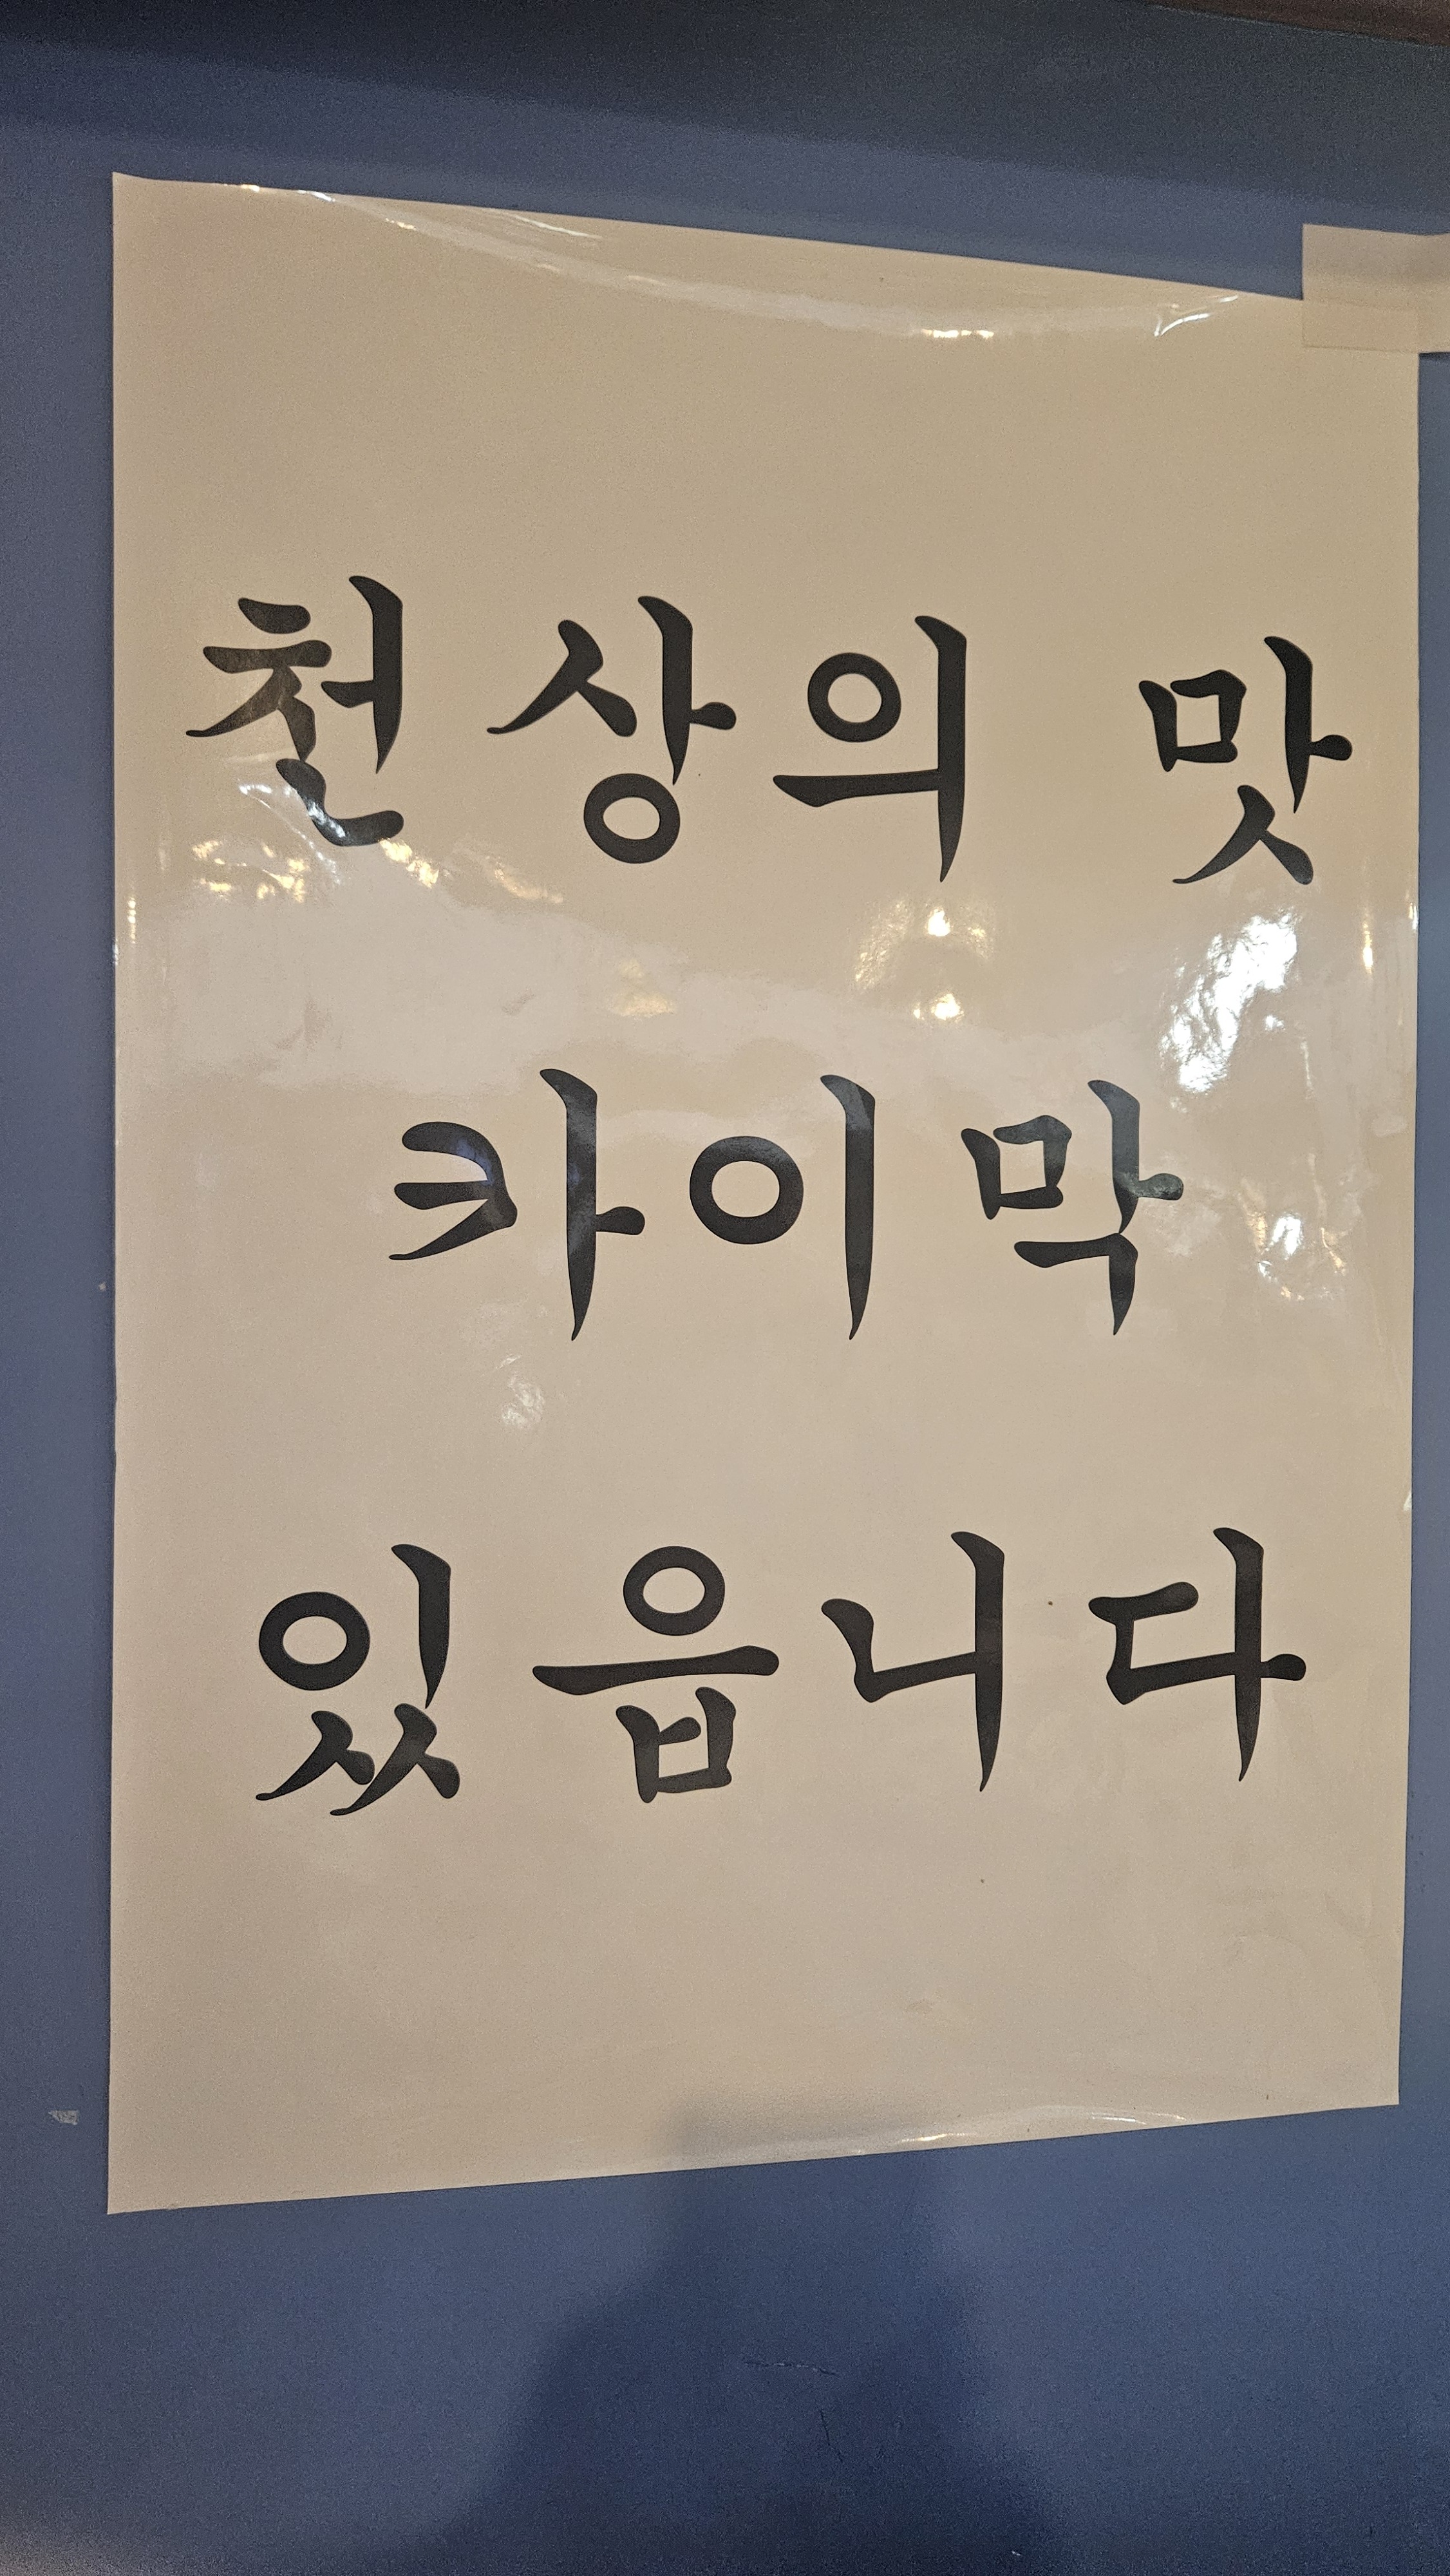 천상의 맛
카이막
있읍니다